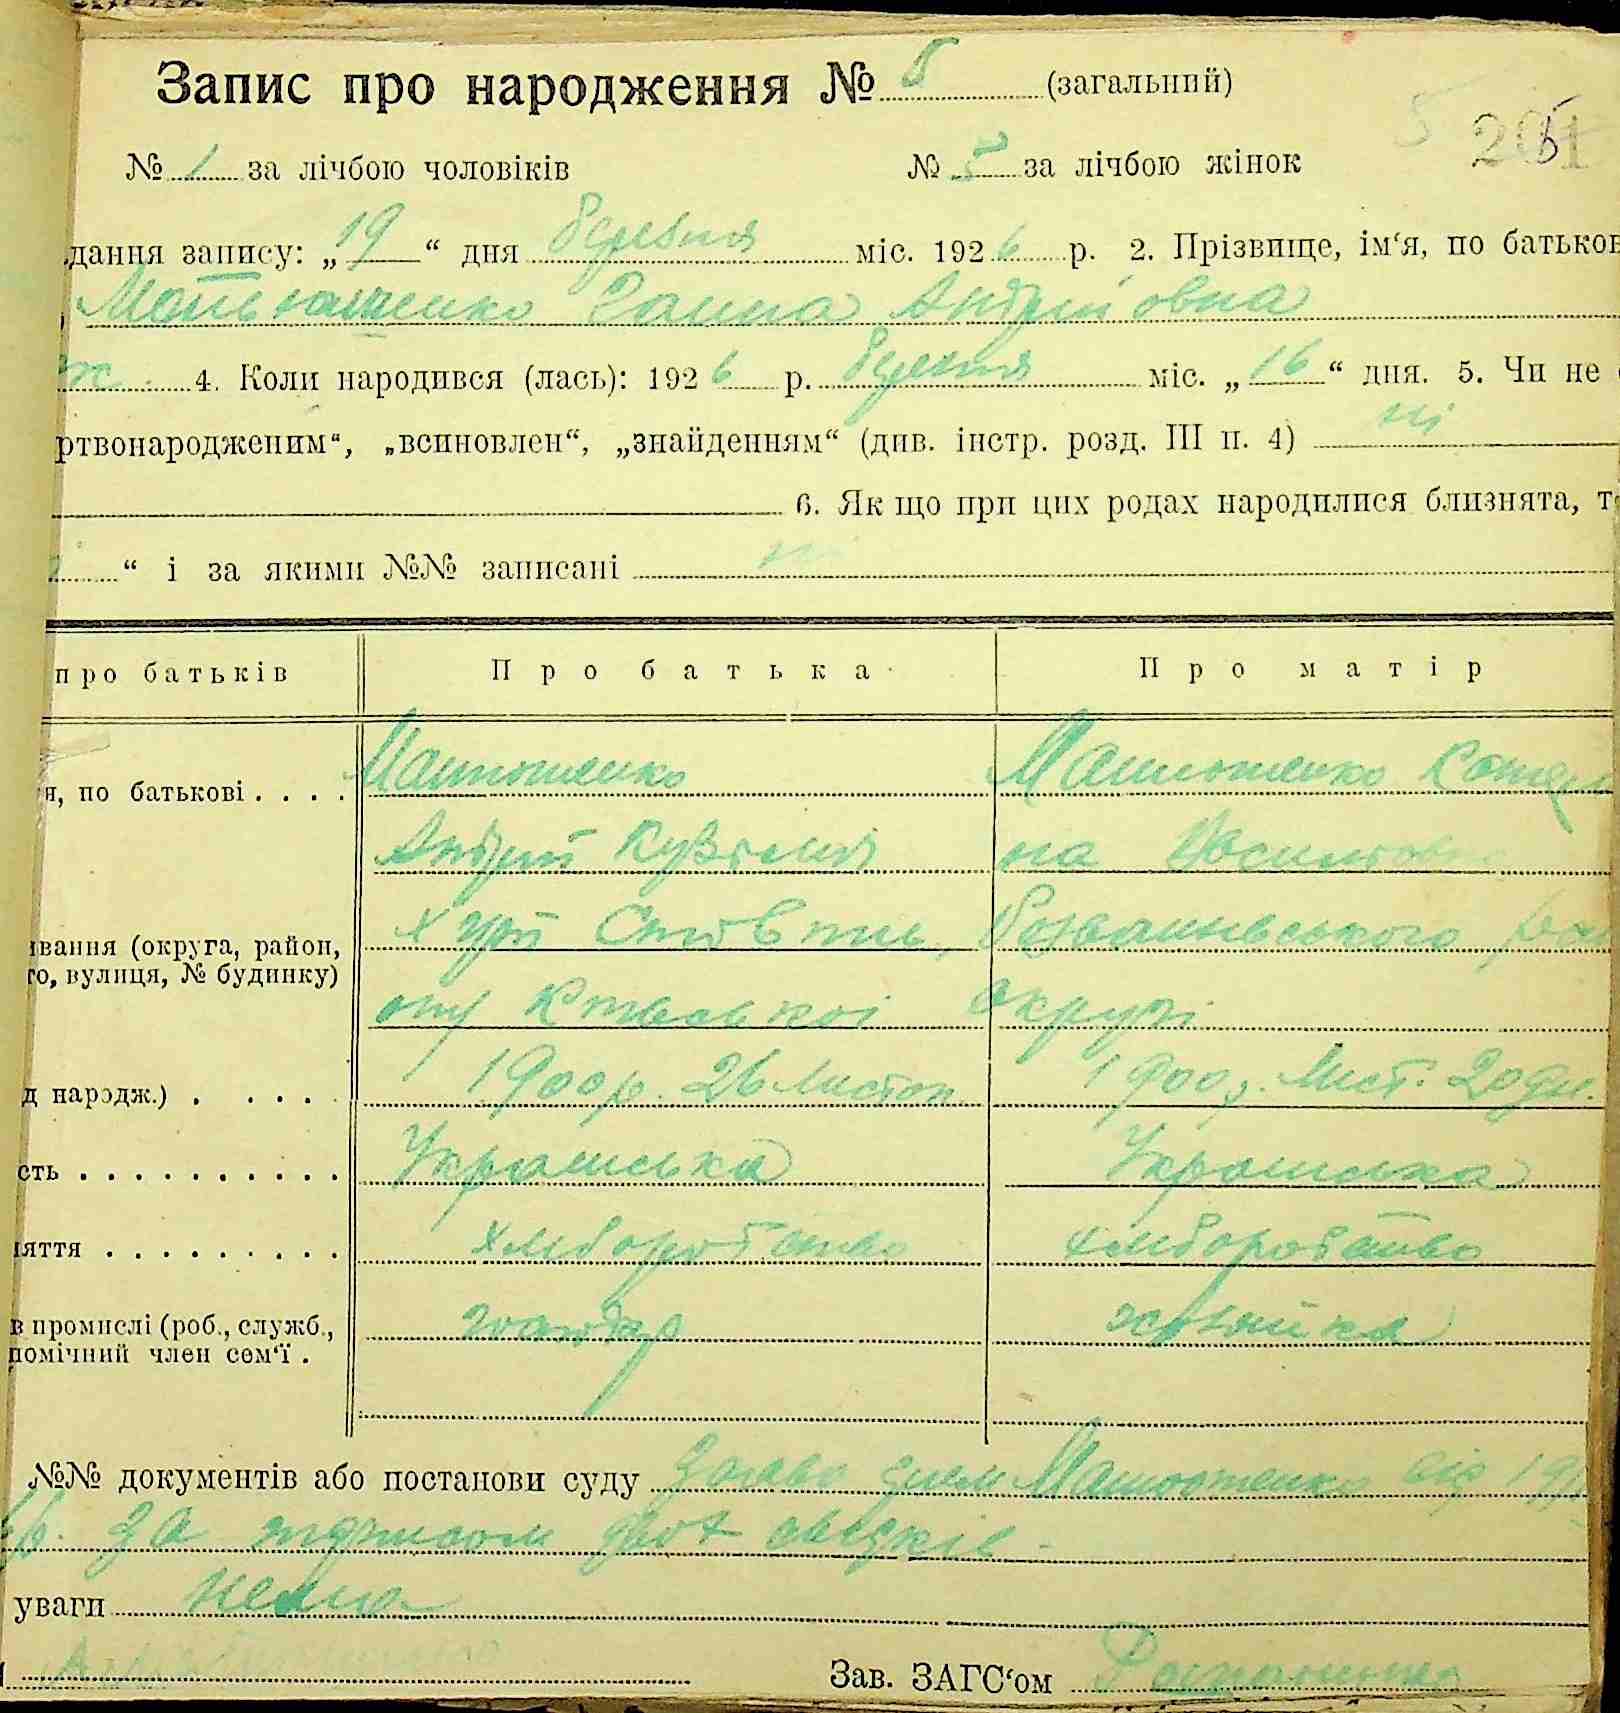 Запис про народження № 5 (загальний)
5 201
№ 1 за лічбою чоловіків № 5 за лічбою жінок
дання запису: „19“ дня березня міс. 1926 р. 2. Прізвище, ім‘я, по батьков
Матюшенко Ганна Андріївна
ж. 4. Коли народився (лась): 1926 р. березня міс. „16“ дня. 5. Чи не
ртвонародженим“, „всиновлен“, „знайденням“ (див. інстр. розд. III п. 4) ні
6. Як що при цих родах народилися близнята, т
“ і за якими №№ записані ні
про батьків Про батька Про матір
я, по батькові . . . . Матюшенко Матюшенко Катер
Андрій на
ивання (округа, район, хут
го, вулиця, № будинку)
ону Київської округи
д народж.) . . . . . 1900 р. 26 Листоп 1900 р. Лист. 20 дн.
сть . . . . . . . . . . Українська Українська
няття . . . . . . . . . хліборобство хліборобство
в промислі (роб., служб., господар хазяйка
помічний член сем‘ї .
№№ документів або постанови суду Матюшенко від 19
за підписом двох свідків
уваги нема
Зав. ЗАГС‘ом